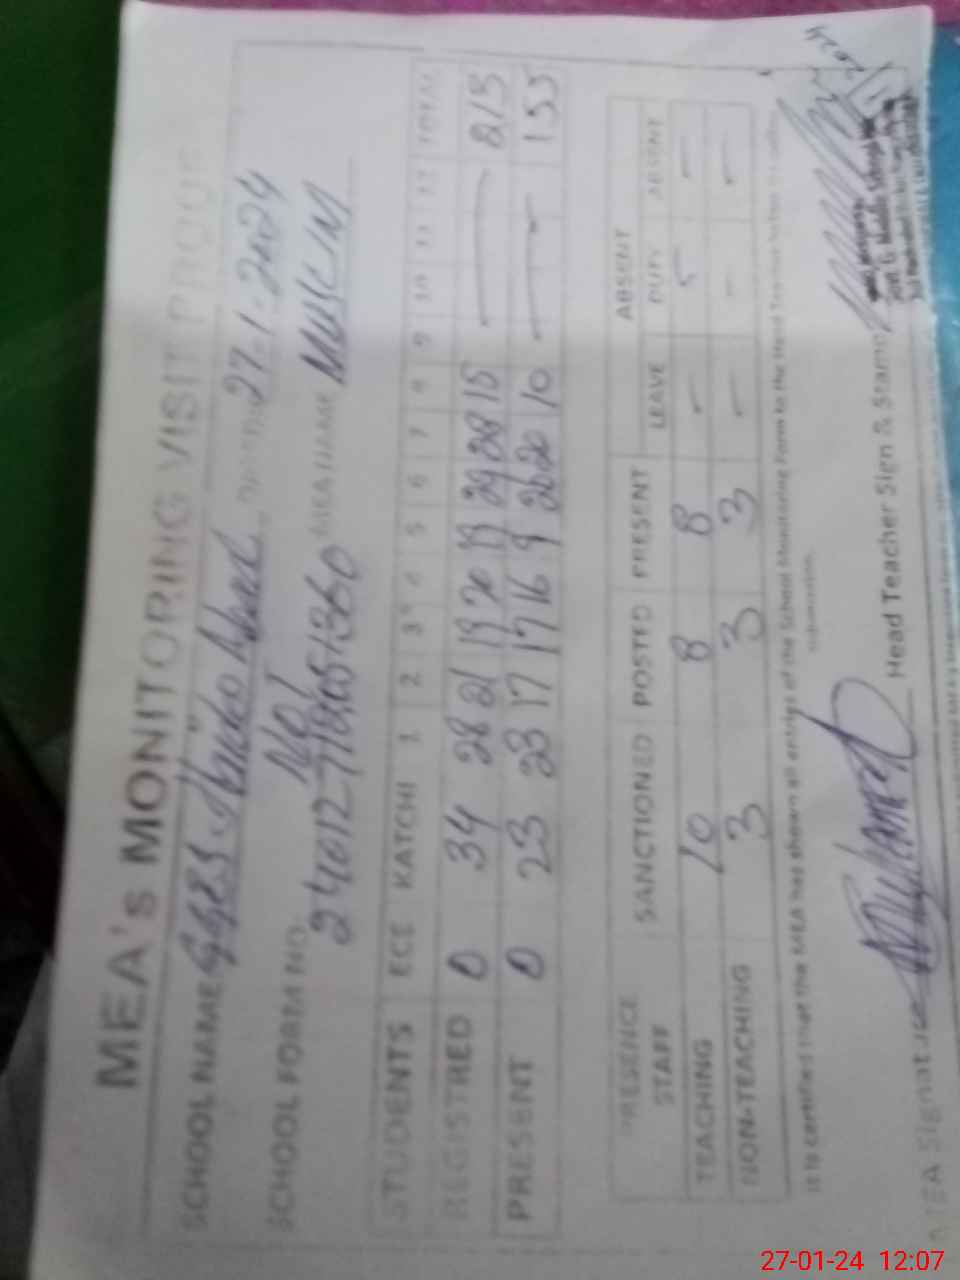 MEA's MONITORING VISIT PROOF
SCHOOL NAME GGES 27-1-2024
SCHOOL FORM NO. MEA NAME MUSLIM
STUDENTS ECE KATCHI 1 2 3 4 5 6 7 8 9 10 11 12 TOTAL
REGISTRED 0 34 28 21 19 20 19 29 28 15 — 215
PRESENT 0 23 23 17 17 16 9 20 20 10 — 155
PRESENCE SANCTIONED POSTED PRESENT ABSENT
STAFF LEAVE DUTY ABSENT
TEACHING 10 8 8 – – –
NON-TEACHING 3 3 3 – – –
It is certified that the MEA has shown all entries of the School Monitoring Form to the Head Teacher
submission.
MEA Signature Head Teacher Sign & Stamp
2024
27-01-24 12:07